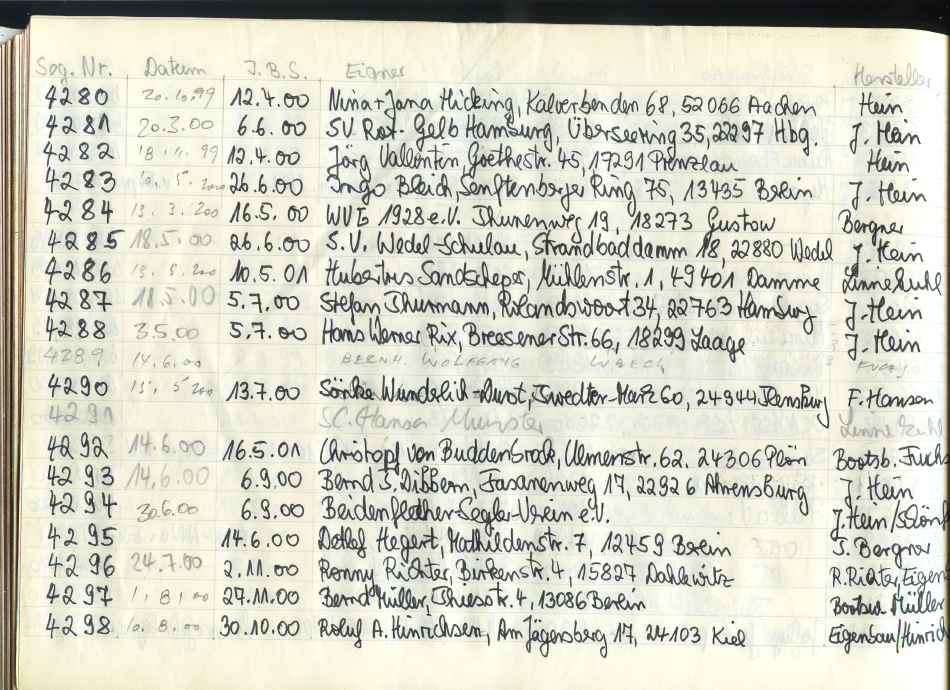 Seg. Nr. Datum I.B.S. Eigner Hersteller
4280 20.10.99 12.4.00 Nina + Jana Hicking, Kalverbenden 68, 52066 Aachen Hein
4281 20.3.00 6.6.00 SV Rot. Gelb Hamburg, Überseering 35, 22297 Hbg. J. Hein
4282 99 12.4.00 Jörg Vallentin, Goethestr. 45, 17291 Prenzlau Hein
4283 26.6.00 Ingo Bleich, Senftenberger Ring 75, 13435 Berlin J. Hein
4284 13.3.200 16.5.00 WVE 1928 e.V. Thünenweg 19, 18273 Güstow Bergner
4285 18.5.00 26.6.00 S.V. Wedel-Schulau, Strandbaddamm 18, 22880 Wedel J. Hein
4286 10.5.01 Hubertus Sandscheper, Mühlenstr. 1, 49401 Damme
4287 11.5.00 5.7.00 Stefan Thurmann, Rolandswoort 34, 22763 Hamburg J. Hein
4288 3.5.00 5.7.00 Hans Werner Rix, Breesener Str. 66, 18299 Laage J. Hein
4289 14.6.00 BERNH. WOLFGANG LÜBECK
4290 13.7.00 Sönke Wunderlich-Durst, Twedter-Mark 60, 24944 Flensburg F. Hansen
4291 SC. Hansa Münster
4292 14.6.00 16.5.01 Christoph von Buddenbrock, Ulmenstr. 62, 24306 Plön Bootsb. Fuchs
4293 14.6.00 6.9.00 Bernd J. Dibbern, Fasanenweg 17, 22926 Ahrensburg J. Hein
4294 30.6.00 6.9.00 Beidenflether-Segler-Verein e.V. J. Hein/
4295 14.6.00 Detlef Hegert, Mathildenstr. 7, 12459 Berlin J. Bergner
4296 24.7.00 2.11.00 Ronny Richter, Birkenstr. 4, 15827 Dahlewitz R. Richter, Eigen
4297 1.8.00 27.11.00 Bernd Müller, Thiesstr. 4, 13086 Berlin Müller
4298 10.8.00 30.10.00 Roluf A. Hinrichsen, Am Jägersberg 17, 24103 Kiel Eigenbau/Hinrich